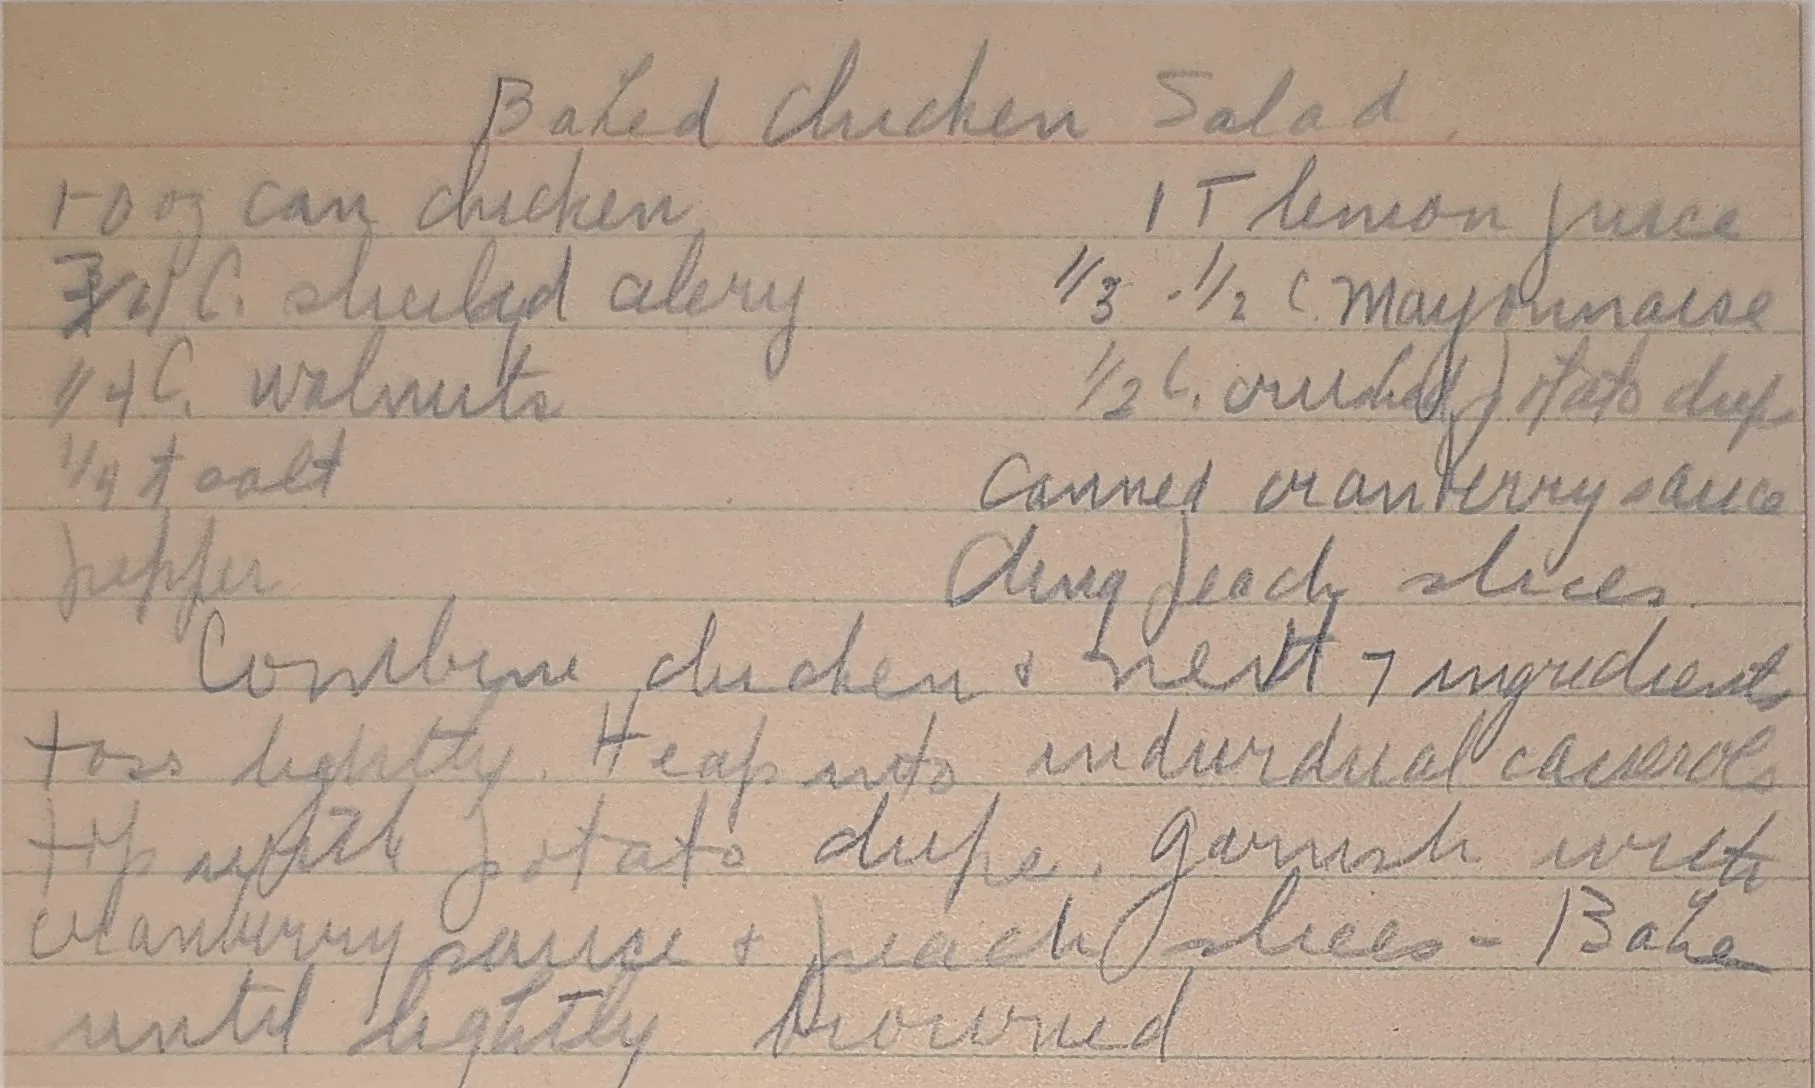 Baked Chicken Salad.
oz can chicken
C. celery
1/4 C. walnuts
1/4 t salt
pepper
1 T lemon juice
1/3 - 1/2 C Mayonnaise
1/2 C. crushed potato
Canned cranberry sauce
Cling peach slices.
Combine chicken + next 7 ingredients
toss lightly. Heap into individual
with potato garnish with
cranberry sauce + peach slices - Bake
until lightly browned